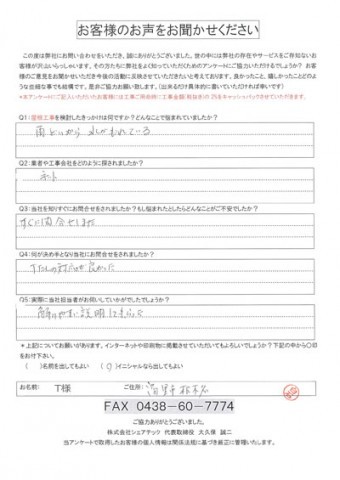 お客様のお声をお聞かせください
この度は弊社にお問い合わせをいただき、誠にありがとうございました。世の中には弊社の存在やサービスをご存知ないお客様が沢山いらっしゃいます。その方たちに弊社をよく知っていただくためのアンケートにご協力いただけるでしょうか? お客様のご意見をお聞かせいただき今後の活動に反映させていただきたいと考えております。良かったこと、嬉しかったことどのような些細な事でも結構です。是非ご協力お願い致します。(出来るだけ具体的に書いていただければ幸いです)
*本アンケートにご記入いただいたお客様には工事ご用命時に工事金額(税抜き)の2%をキャッシュバックさせていただきます。
Q1:屋根工事を検討したきっかけは何ですか?どんなことで悩まれていましたか?
雨どいから水がもれている
Q2:業者や工事会社をどのように探されましたか?
ネット
Q3:当社を知りすぐにお問合せをされましたか?もし悩まれたとしたらどんなことがご不安でしたか?
すぐに問合せした
Q4:何が決め手となり当社にお問合せをされましたか?
対応が良かった
Q5:実際に当社担当者がお伺いしていかがでしたでしょうか?
解りやすい説明でした
*上記についてお願いがあります。インターネットや印刷物に掲載させていただいてもよろしいでしょうか?下記の中から〇印をお付け下さい。
( )名前を出してもよい (〇)イニシャルなら出してもよい
お名前: T様 ご住所:
FAX 0438-60-7774
ご協力ありがとうございました。
株式会社シェアテック 代表取締役 大久保 誠二
当アンケートで取得したお客様の個人情報は関係法規に基づき厳正に管理いたします。